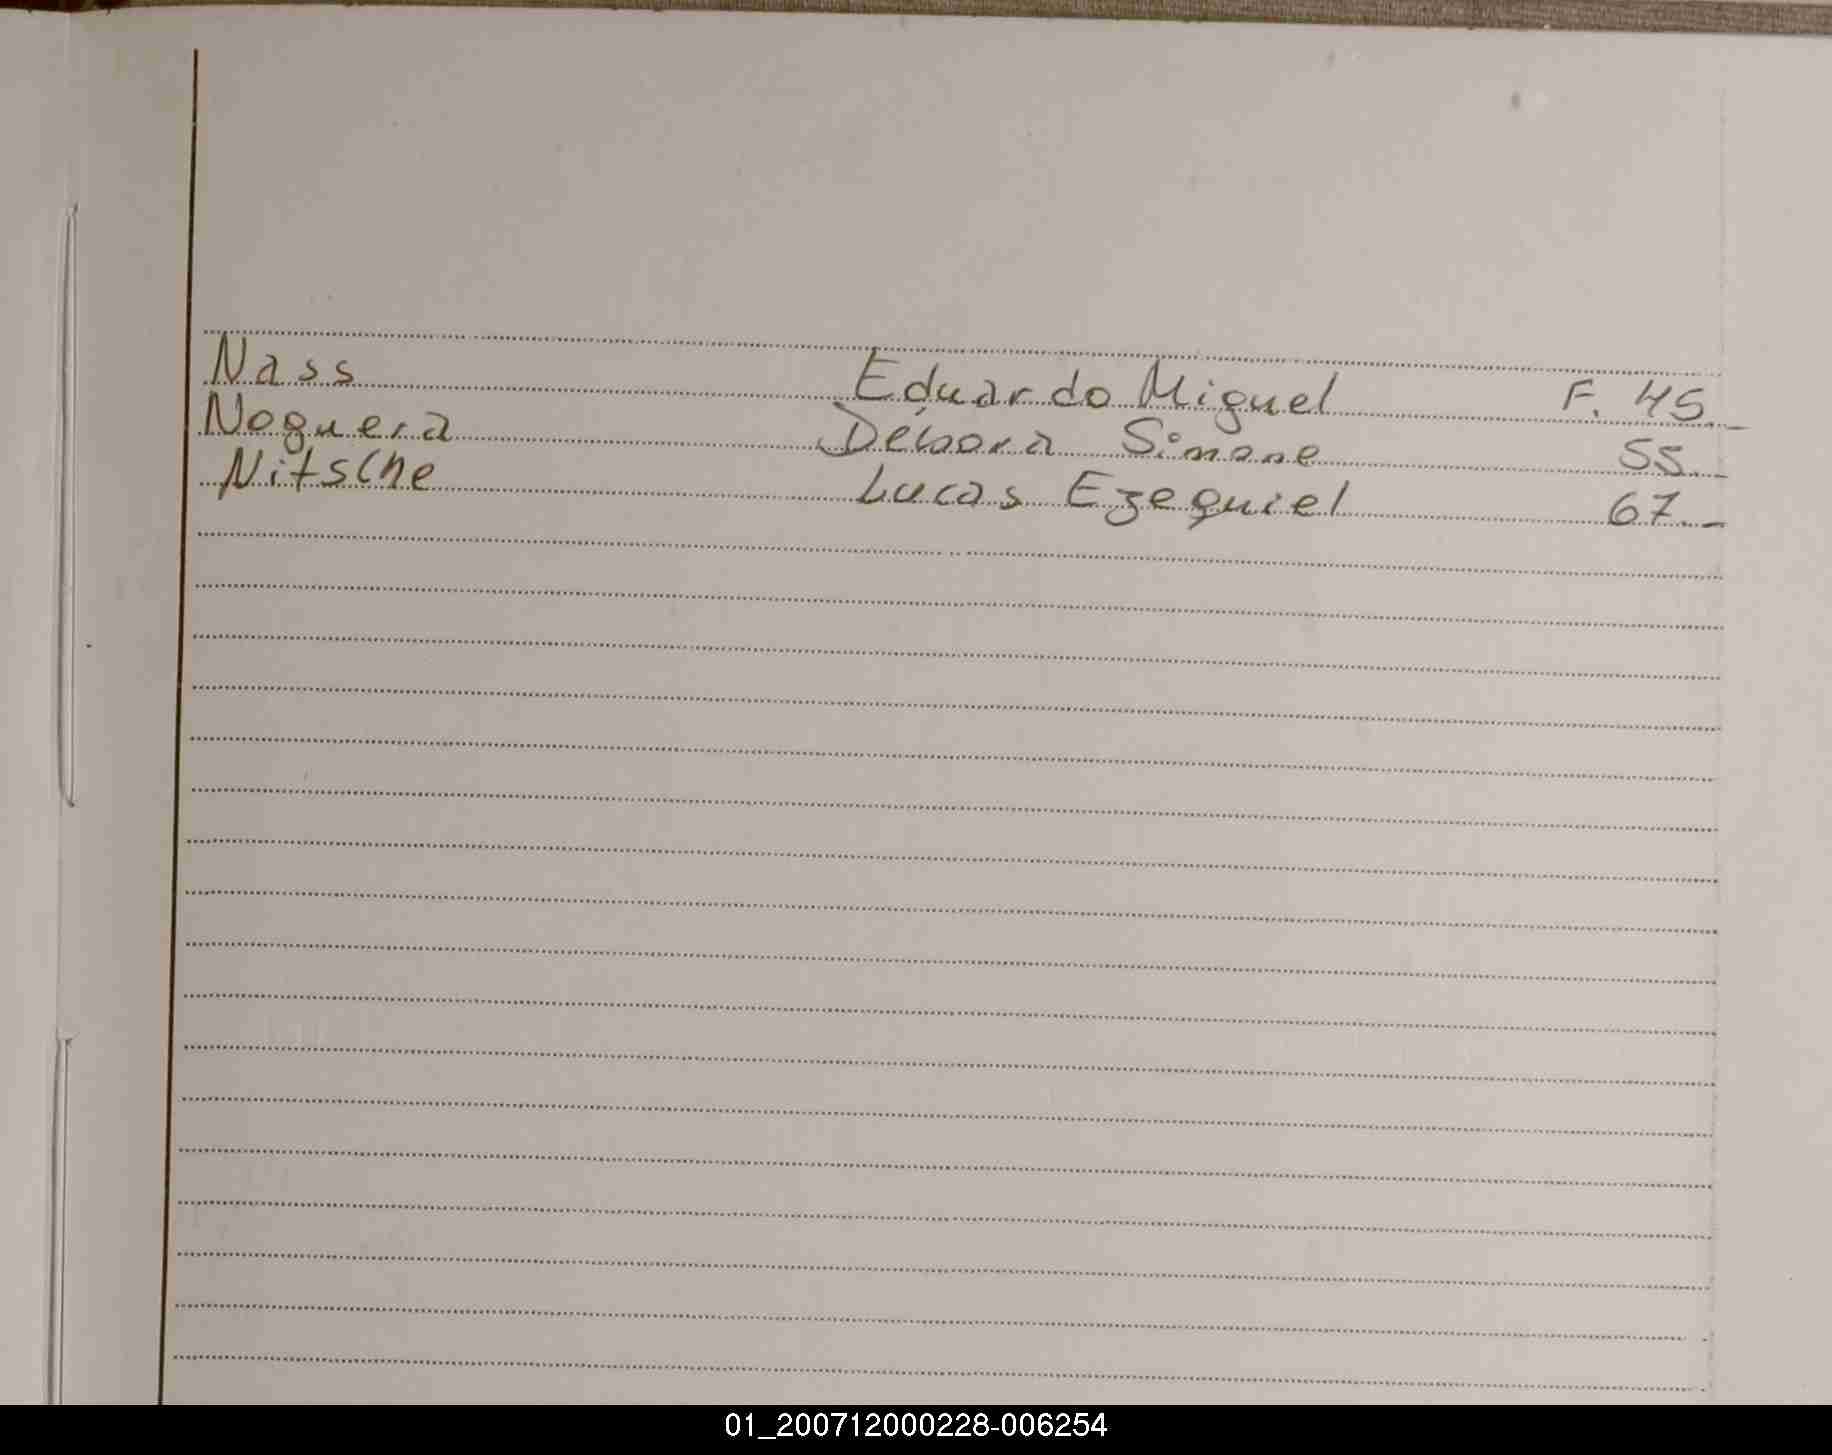 Nass Eduardo Miguel F. 45.-
Noguera Débora Simone 55.-
Nitsche Lucas Ezequiel 67.-
01_200712000228-006254